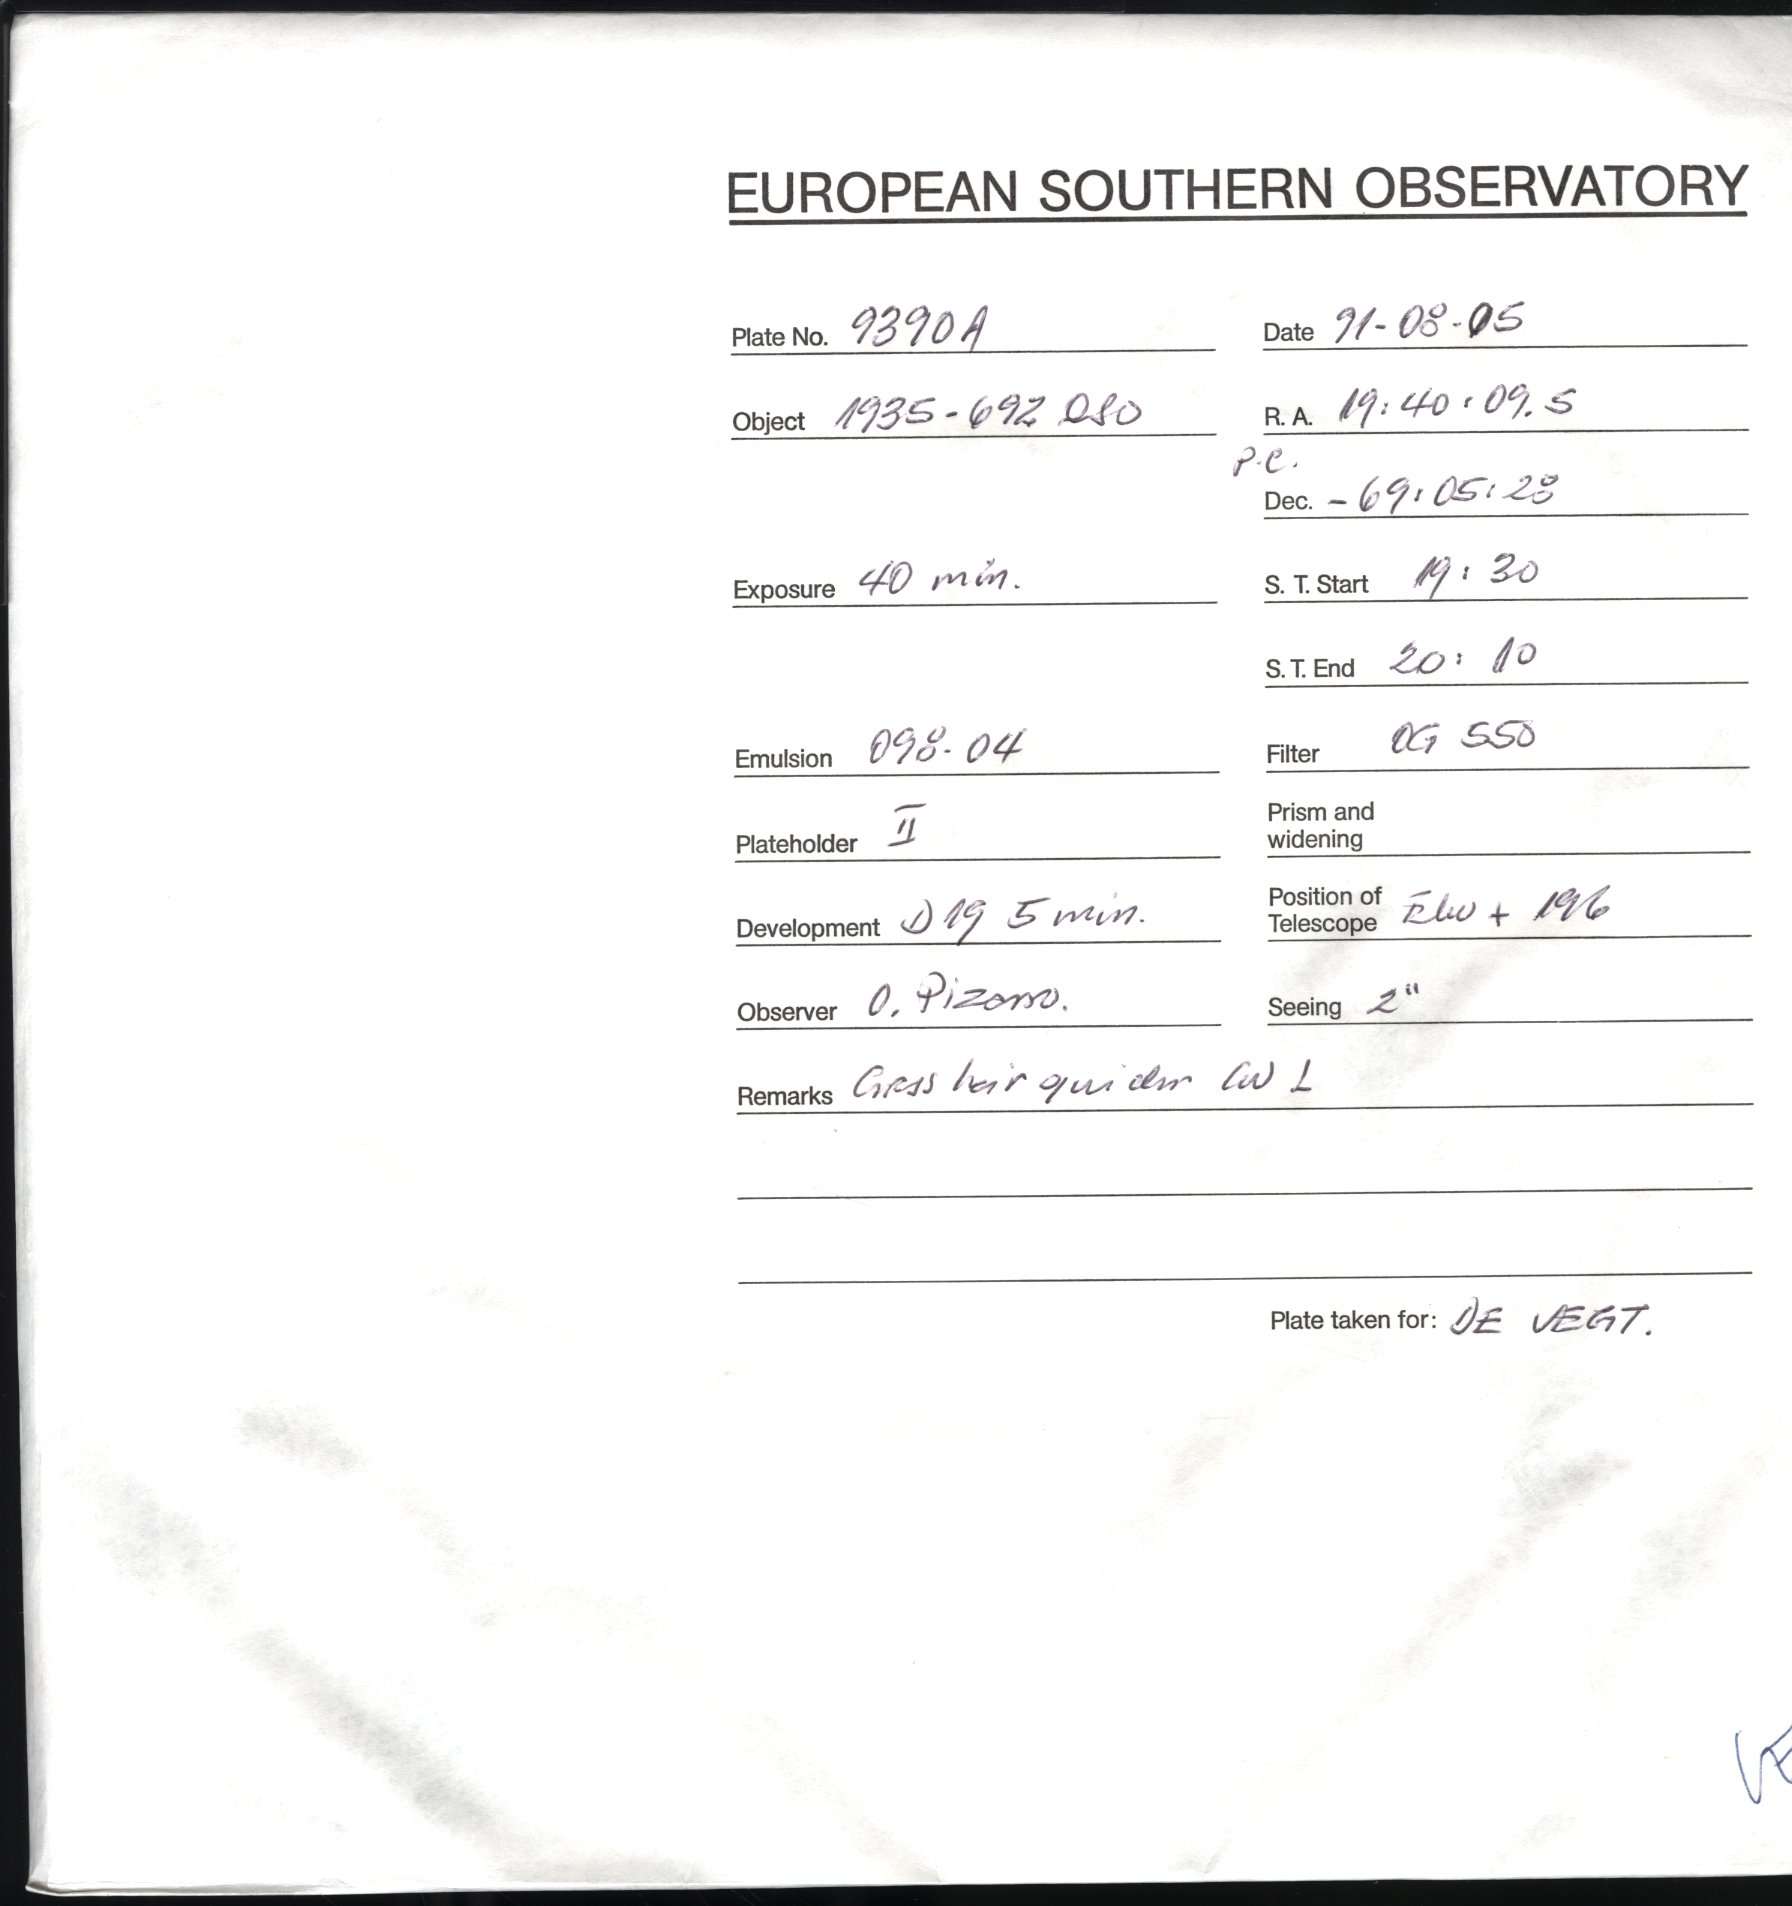 EUROPEAN SOUTHERN OBSERVATORY
Plate No. 9390A Date 91-08-05
Object 1935-692 QSO R. A. 19:40:09.5
P.C.
Dec. -69:05:28
Exposure 40 min. S. T. Start 19:30
S. T. End 20:10
Emulsion 098-04 Filter OG 550
Plateholder II Prism and
widening
Development D19 5 min. Position of
Telescope + 196
Observer O. Pizarro. Seeing 2"
Remarks
Plate taken for: DE VEGT.
VE